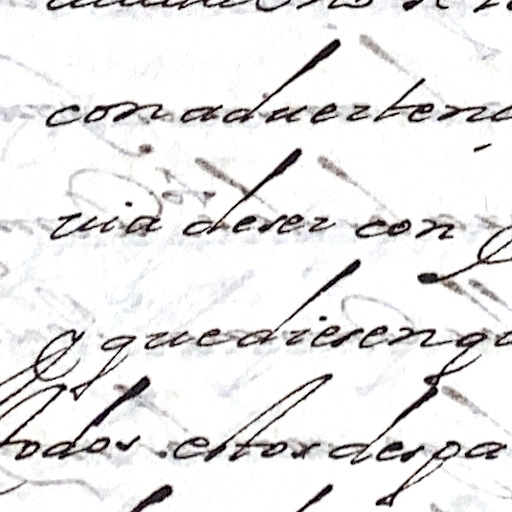 con aduerten
uia de ser con
y que diesen qu
todos estos despa